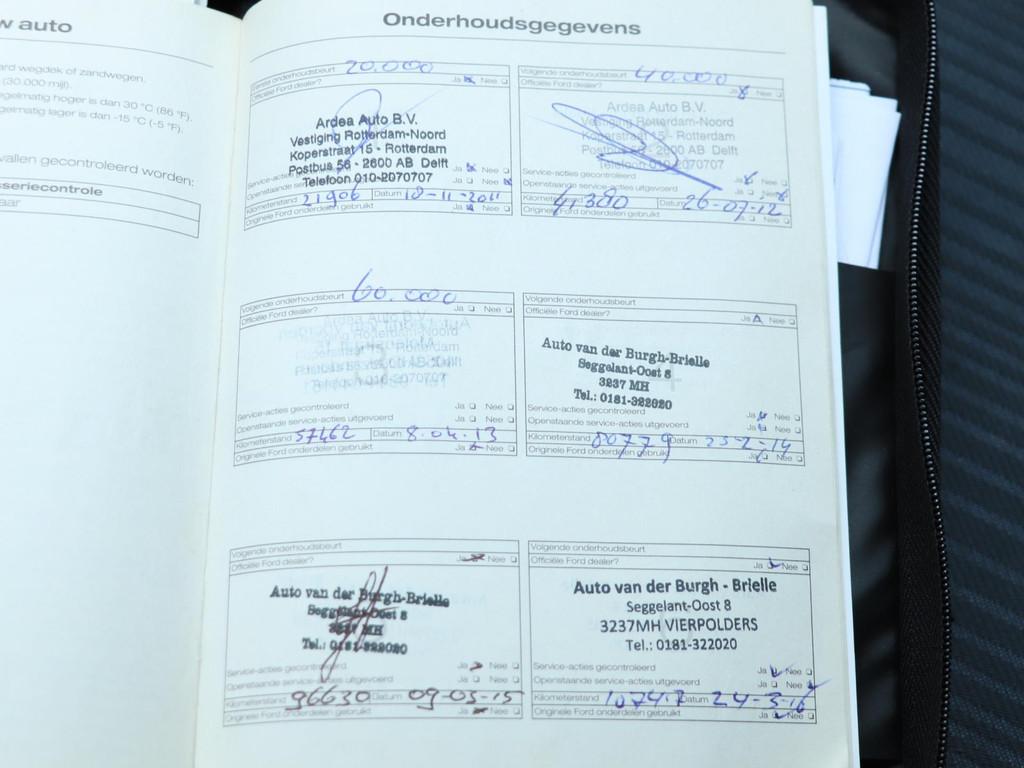 w auto
ard wegdek of zandwegen.
(30.000 mijl).
gelmatig hoger is dan 30 °C (86 °F).
gelmatig lager is dan -15 °C (-5 °F).
vallen gecontroleerd worden:
sseriecontrole
aar
Onderhoudsgegevens
Eerste onderhoudsbeurt 20.000
Officiële Ford dealer? Ja Nee
Ardea Auto B.V.
Vestiging Rotterdam-Noord
Koperstraat 15 - Rotterdam
Postbus 56 - 2600 AB Delft
Telefoon 010-2070707
Service-acties Ja Nee
Openstaande service-acties Ja Nee
Kilometerstand 21906 Datum 18-11-2011
Originele Ford onderdelen gebruikt Ja Nee
Volgende onderhoudsbeurt 40.000
Officiële Ford dealer? Ja Nee
Ardea Auto B.V.
Vestiging Rotterdam-Noord
Koperstraat 15 - Rotterdam
Postbus 56 - 2600 AB Delft
Telefoon 010-2070707
Service-acties gecontroleerd Ja Nee
Openstaande service-acties uitgevoerd Ja Nee
Kilometerstand 41380 Datum 26-07-12
Originele Ford onderdelen gebruikt Ja Nee
Volgende onderhoudsbeurt 60.000
Officiële Ford dealer?
Ardea Auto B.V.
Vestiging Rotterdam-Noord
Koperstraat 15 - Rotterdam
Postbus 56 - 2600 AB Delft
Telefoon 010-2070707
Service-acties gecontroleerd Ja Nee
Openstaande service-acties uitgevoerd Ja Nee
Kilometerstand 57462 Datum 8.04.13
Originele Ford onderdelen gebruikt Ja Nee
Volgende onderhoudsbeurt
Officiële Ford dealer? Ja Nee
Auto van der Burgh-Brielle
Seggelant-Oost 8
3237 MH
Tel.: 0181-322020
Service-acties gecontroleerd Ja Nee
Openstaande service-acties uitgevoerd Ja Nee
Kilometerstand 80779 Datum 25-2-14
Originele Ford onderdelen gebruikt Ja Nee
Volgende onderhoudsbeurt
Officiële Ford dealer? Ja Nee
Auto van der Burgh-Brielle
Seggelant-Oost 8
3237 MH
Tel.: 0181-322020
Service-acties gecontroleerd Ja Nee
Openstaande service-acties uitgevoerd Ja Nee
Kilometerstand 96630 Datum 09-03-15
Originele Ford onderdelen gebruikt Ja Nee
Volgende onderhoudsbeurt
Officiële Ford dealer? Ja Nee
Auto van der Burgh - Brielle
Seggelant-Oost 8
3237MH VIERPOLDERS
Tel.: 0181-322020
Service-acties gecontroleerd Ja Nee
Openstaande service-acties uitgevoerd Ja Nee
Kilometerstand 107417 Datum 24-3-16
Originele Ford onderdelen gebruikt Ja Nee